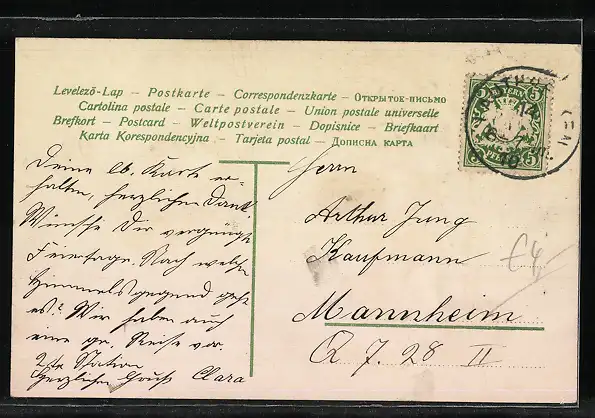 Levelező-Lap – Postkarte – Correspondenzkarte – Открытое-письмо
Cartolina postale – Carte postale – Union postale universelle
Brefkort – Postcard – Weltpostverein – Dopisnice – Briefkaart
Karta Korespondencyjna – Tarjeta postal – Дописна карта
BAYERN
5 5
Deine lb. Karte er-
halten, herzlichen Dank
Wünsche Dir vergnügte
Feiertage. Nach welcher
Himmelsgegend geht
es? Wir haben auch
eine gr. Reise vor
Station
Herzlichen Gruß Clara
Herrn
Arthur Jung
Kaufmann
Mannheim
Q 7. 28 II
£4